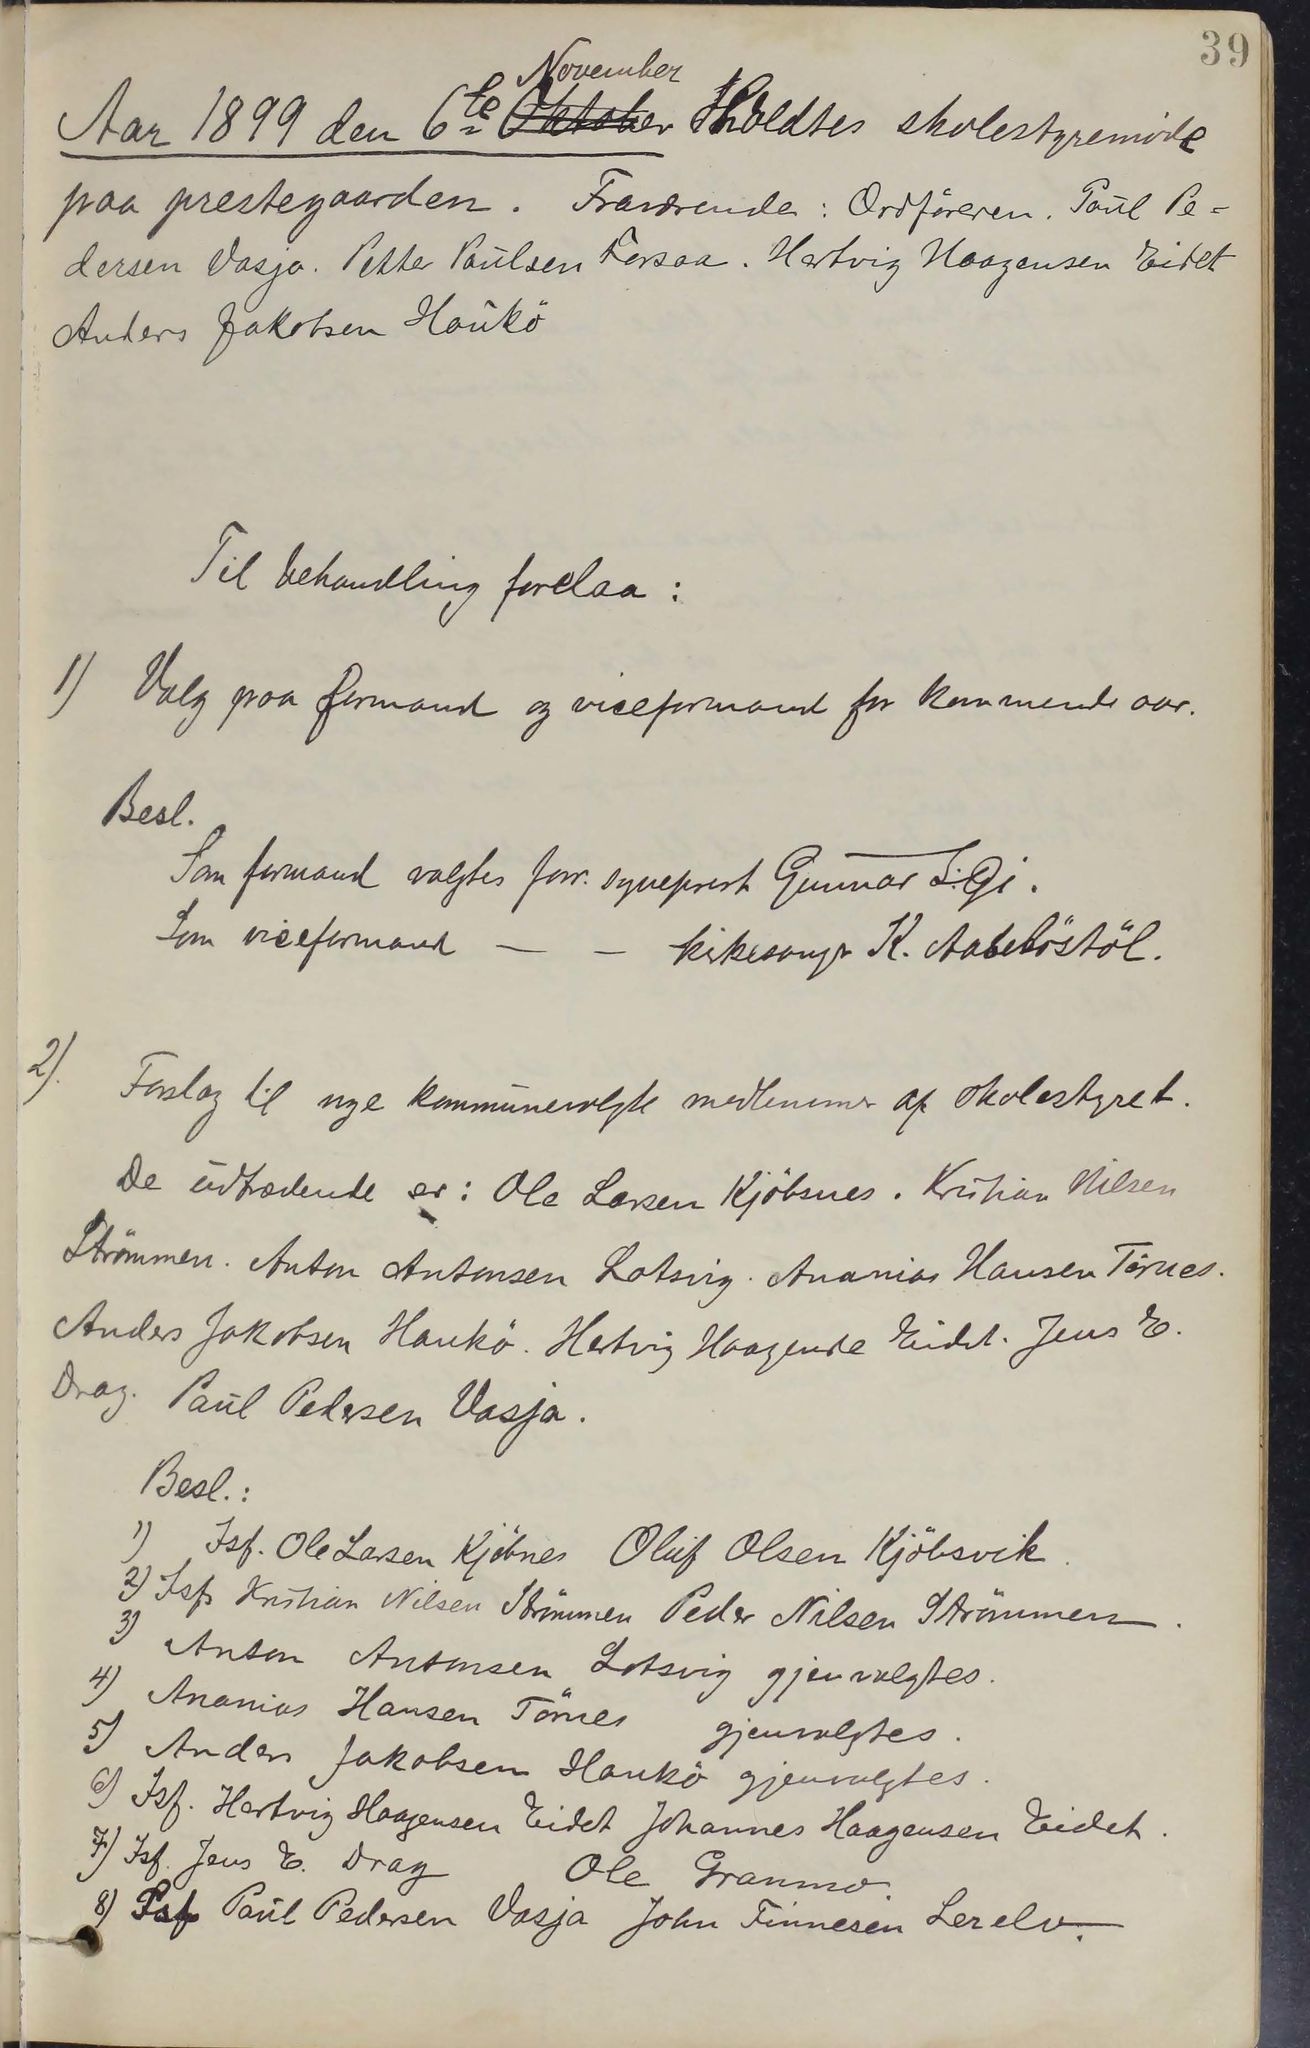 39
November
Aar 1899 den 6te Oktober Holdtes skolestyremöde
paa prestegaarden. Fraværende: Ordföreren. Paul Pe-
dersen Vasja. Petter Paulsen Forsaa. Hertvig Haagensen Eidet
Anders Jakobsen Haukö
Til behandling forelaa:
1) Valg paa formand og viceformand for kommende aar.
Besl.
Som formand valgtes forr. sogneprest Gunnar
Som viceformand — — kirkesanger K.
2). Forslag til nye kommunevalgte medlemmer af skolestyret.
De udtrædende er: Ole Larsen Kjöbsnes. Kristian Nilsen
Strömmen. Anton Antonsen Lotsvig. Ananias Hansen Törnes.
Anders Jakobsen Haukö. Hertvig Eidet. Jens E.
Drag. Paul Pedersen Vasja.
Besl.:
1) Isf. Ole Larsen Kjöbnes Oluf Olsen Kjöbsvik.
2) Isf. Kristian Nilsen Strömmen Peder Nilsen Strömmen.
3) Anton Antonsen Lotsvig gjenvalgtes.
4) Ananias Hansen Törnes gjenvalgtes.
5) Anders Jakobsen Haukö gjenvalgtes.
6) Isf. Hertvig Haagensen Eidet Johannes Haagensen Eidet.
7) Isf. Jens E. Drag Ole Granmo.
8) Isf Paul Pedersen Vasja John Finnesen Lerelv.